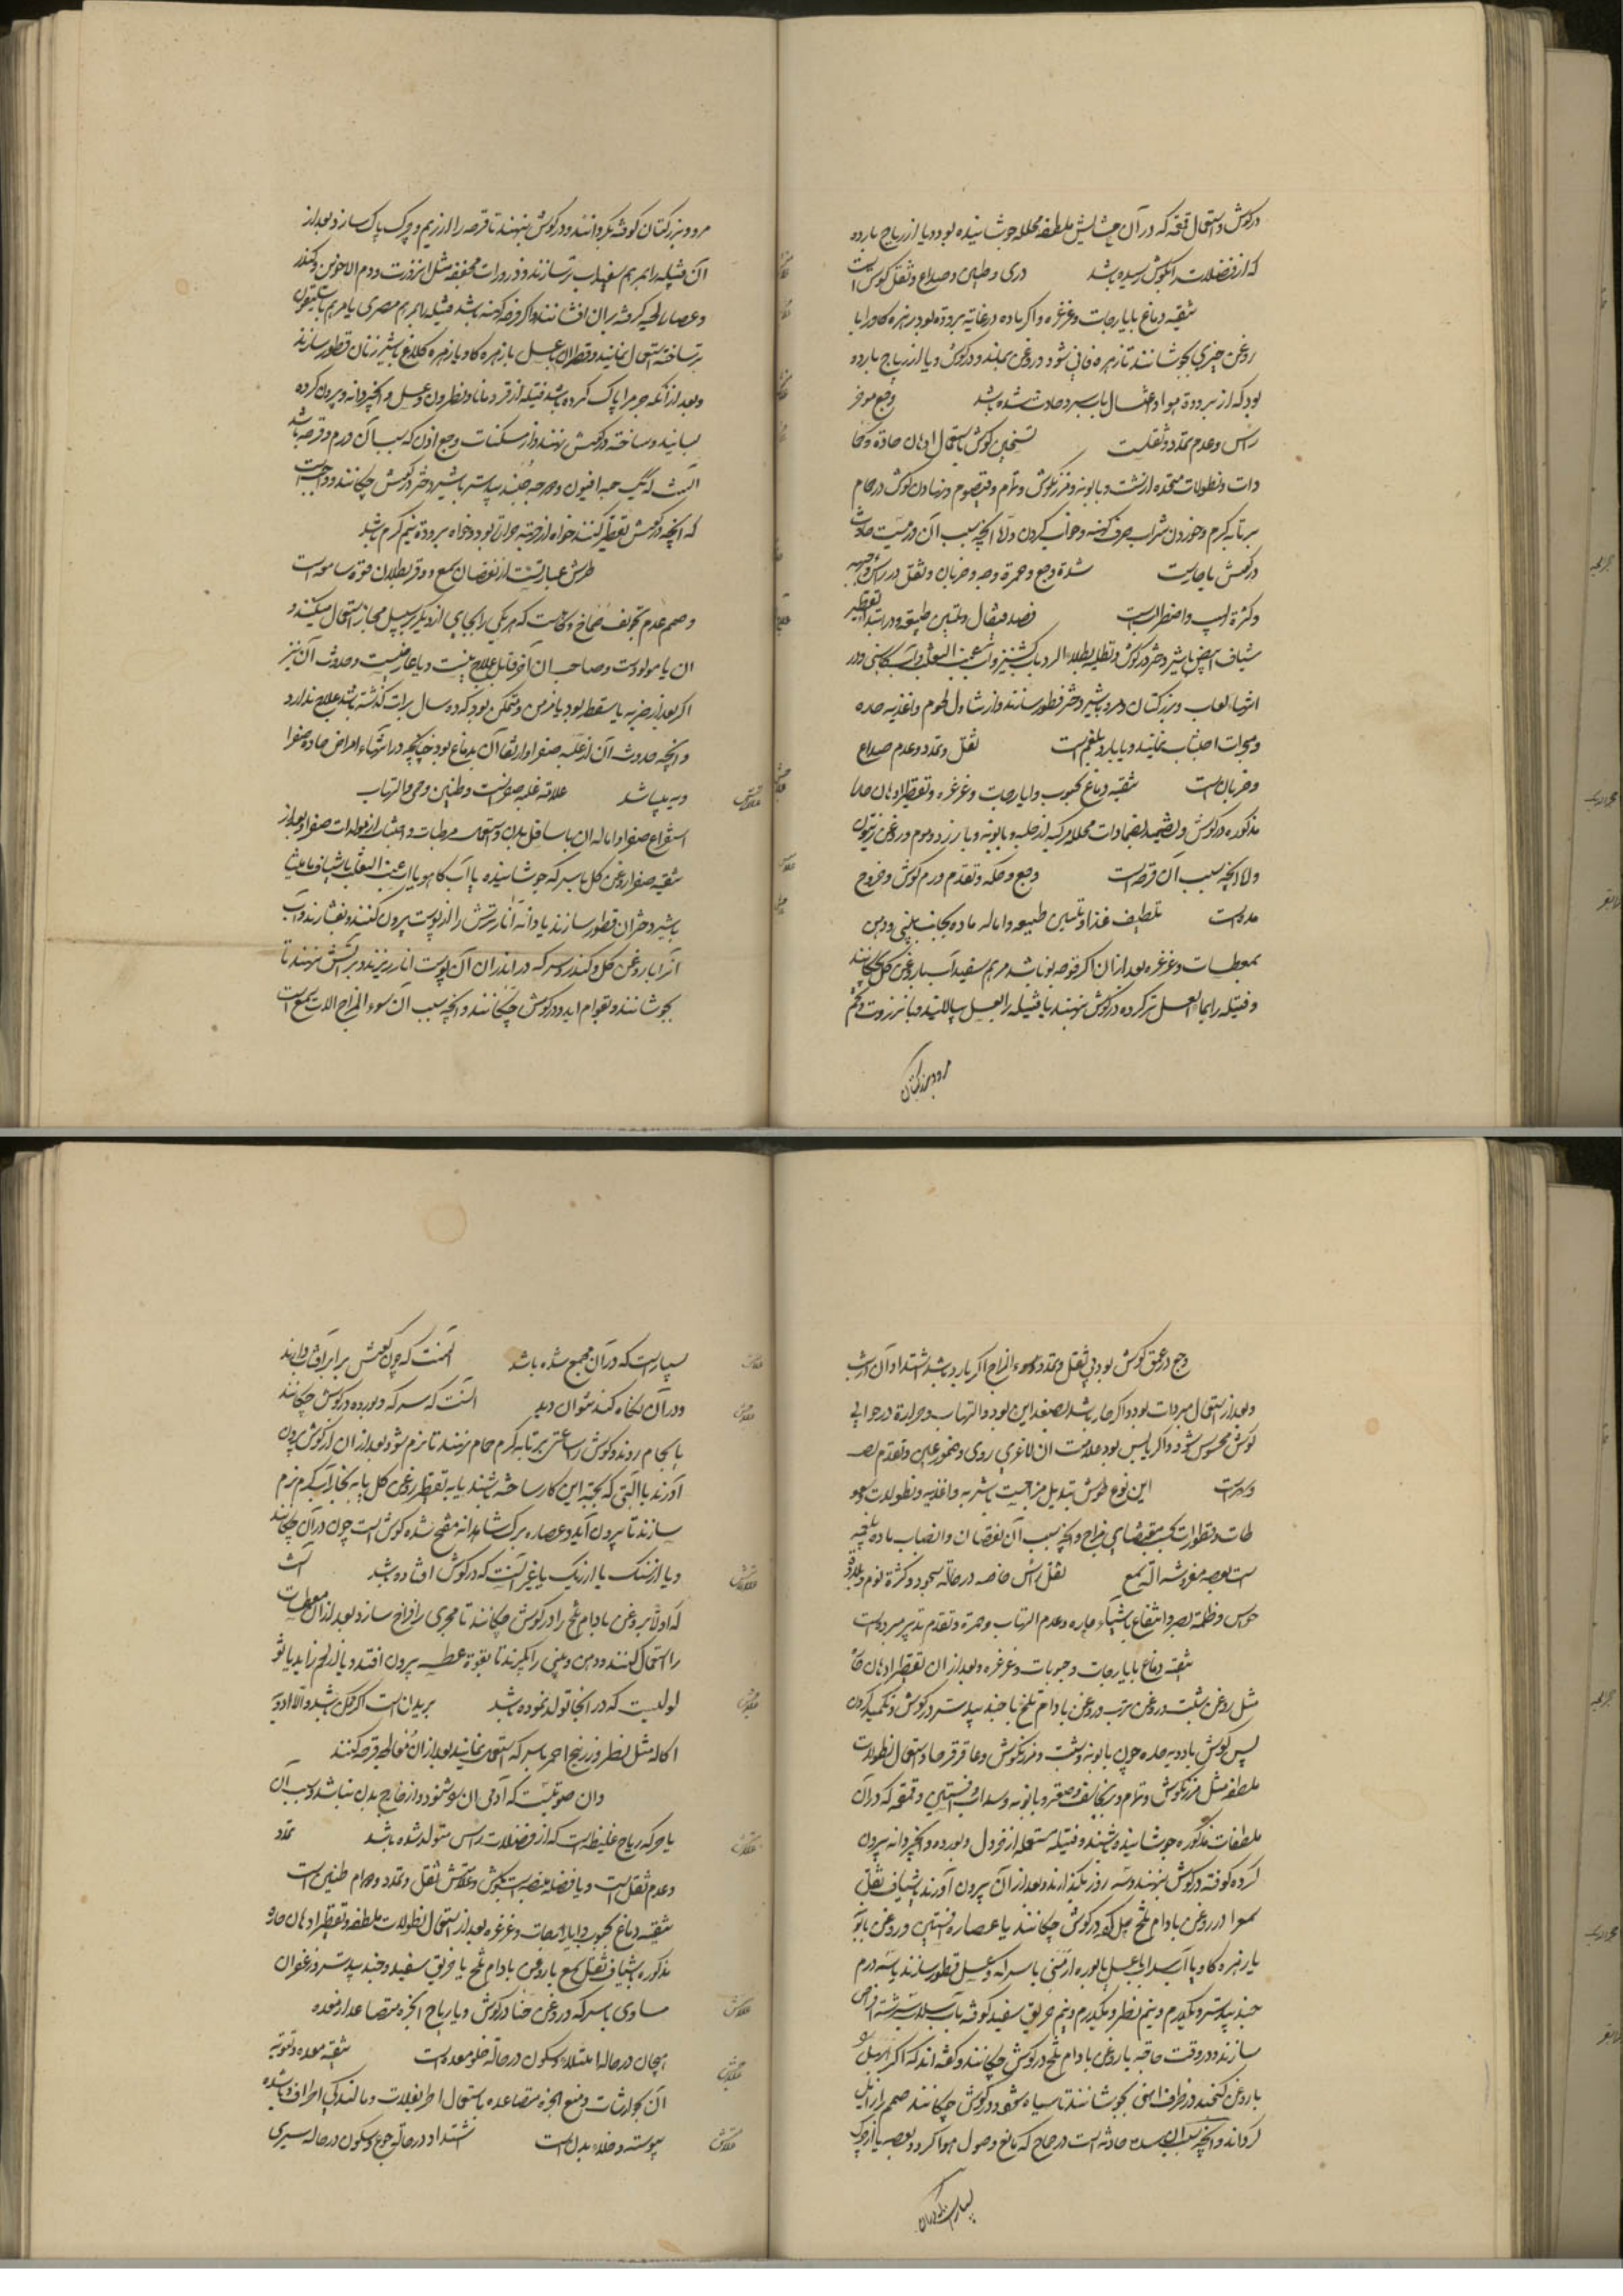 درکوش و استعمال قمقمه که در آن حشایش ملطفه محلله جوشانیده بود و یا از ریاح بارده
که از فضلات بکوش رسیده باشد دوی و طنین و صداع و ثقل کوش است
تنقیه دماغ بایارجات و غرغره و اکر ماده در غایة برودة بود زهره کاو را با
روغن خیری بجوشانند تا زهره فانی شود و روغن بماند و درکوش و یا از ریاح بارده
بود که از برودة هوا و اغتسال بآب سرد حادث شده باشد وجع موخر
راس و عدم تمدد و ثقلست تسخین کوش باستعمال ادهان حاده
و نطولات متخذه از شبت و بابونه و مرزنکوش و نمام و قیصوم و نهادن کوش در حمام
بر تابه کرم و خوردن شراب صرف کهنه و خواب کردن و لا انچه سبب آن ورمیست حادث
درکوش یا حاریست شدة وجع و حمرة وجه و ضربان و ثقل در راس
و کثرة لهیب و اضطرابست فصد قیفال و تلیین طبیعه و در ابتدا تقطیر
شیاف ابیض باشیر دختر درکوش و تطلیه بطلاء بارد بآب کشنیز و آب عنب الثعلب و آب کاسنی و در
انتها لعاب و بزر کتان و مرو باشیر دختر قطور سازند و از تناول لحوم و اغذیه حاره
و مبخرات اجتناب نمایند و یا بارد بلغمیست ثقل و تمدد و عدم صداع
و ضربانست تنقیه دماغ بحبوب و ایارجات و غرغره و تقطیر ادهان حاره
مذکوره درکوش و تضمید بضمادات محلله مرکبه از حلبه و بابونه و بارزد و موم و روغن زیتون
و لا انچه سبب آن قرحه است وجع و حکه و تقدم ورم کوش و خروج
مده است تلطیف غذا و تلیین طبیعه و اماله ماده بجانب بینی و دهن
بمعطسات و غرغره بعد از ان اکر قرحه نو باشد مرهم سفیداب با روغن کل بچکانند
و فتیله را بماء العسل تر کرده درکوش نهند یا فتیله را بعسل بیالایند و بانزروت و تخم
مرو و بزر کتان
مرو و بزر کتان کوفته بکردانند و درکوش نهند تا قرحه را از ریم و چرک پاک سازد و بعد از
آن فتیله را بمرهم سفیداب تر سازند و ذرورات مجففه مثل انزروت و دم الاخوین و کندر
و عصاره لحیه کرفته بران افشانند و اکر قرحه کهنه باشد فتیله بمرهم مصری یا مرهم باسلیقون
تر ساخته استعمال نمایند و قطران با عسل یا زهره کاو یا زهره کلاغ باشیر زنان قطور سازند
و بعد از آنکه چرم را پاک کرده باشد فتیله از قردمانا و نطرون و عسل و انجیر دانه بیرون کرده
بسایند و ساخته درکوش نهند و از مسکنات وجع اذن که سبب آن ورم و قرحه باشد
آنست که یک حبه افیون و دو حبه جندبیدستر باشیر دختر درکوش چکانند و واجبست
که انچه درکوش تقطیر کنند خواه از جهة حرارة بود و خواه برودة نیم کرم باشد
طرش عبارتست از نقصان سمع و وقر بطلان قوة سامعه است
و صمم عدم تجویف صماخ و کاه هست که هر یکی را بجای از دیکر بر سبیل مجاز استعمال میکنند و
ان یا مولودست و صاحب ان آفة قابل علاج نیست و یا عارضیست و حدوث آن نیز
اکر بعد از ضربه یا سقطه بود یا مزمن و متمکن بود که دو سال بران گذشته باشد علاج ندارد
و انچه حدوث آن از غلبه صفرا و ارتقا آن بدماغ بود چنانچه در انتهاء امراض حاده صفرا
ویه میباشد علامة غلبه صفراست و طنین و حمی و التهاب
استفراغ صفرا و اماله ان باسافل بدن و استعمال مرطبات و اجتناب از مولدات صفرا و بعد از
تنقیه صفرا روغن کل باسرکه جوشانیده یا آب کاهو یا آب عنب الثعلب یا شیاف مامیثا
باشیر دختران قطور سازند یا دانه انار ترش را از پوست بیرون کنند و بفشارند و آب
آنرا با روغن کل و کندر و سرکه در اندران آن پوست انار ریزند و بر آتش نهند تا
بجوشانند و بقوام اید و درکوش چکانند و انچه سبب آن سوء المزاج الات سمع است
وجع در عمق کوش بود بی ثقل و تمدد و سوء المزاج اکر بارد باشد اشتداد آن در شب
و بعد از استعمال مبردات بود و اکر حار باشد بضد این بود و التهاب و حرارة در حوالی
کوش محسوس شود و اکر یابس بود علامت ان لاغری روی و ضمور عین و تقدم
و سهر است این نوع طرش تبدیل مزاجست باشربه و اغذیه و نطولات و سعو
طات و قطورات بمقتضای مزاج و انچه سبب آن نقصان و انصباب ماده بلغمیه
است بعصبه مفروشه آلة سمع ثقل راس خاصه در حالة سجود و کثرة نوم و بلادة
حواس و ظلمة بصر و انتفاع باشیاء حاره و عدم التهاب و حمرة و تقدم تدبیر مبرده است
تنقیه دماغ بایارجات و حبوبات و غرغره و بعد از ان تقطیر ادهان
مثل روغن شبت و روغن ترب و روغن بادام تلخ با جندبیدستر درکوش و تکمید کردن
پس کوش بادویه حاره چون بابونه و شبت و مرزنکوش و عاقرقرحا و استعمال نطولات
ملطفه مثل مرزنکوش و نمام و برنجاسف و صعتر و بابونه و سداب و افسنتین و قمقمه که در آن
ملطفات مذکوره جوشانیده باشند و فتیله مستعمله از خردل و بوره و انجیر دانه بیرون
کرده کوفته درکوش نهند و سه روز بکذارند و بعد از آن بیرون آورند یا شیاف ثقل
سمع را در روغن بادام تلخ حل کرده درکوش چکانند یا عصاره افسنتین و روغن بابونه
یا زهره کاو یا آب سداب یا عسل یا بوره ارمنی یا سرکه و عسل قطور سازند یا سه درم
جندبیدستر و یکدرم و نیم نطرون و یکدرم و نیم خربق سفید کوفته بآب سداب سرشته اقراص
سازند و در وقت حاجة با روغن بادام تلخ درکوش چکانند و کفته اند که اکر
با روغن کنجد در ظرف اهنی بجوشانند تا سیاه شود و درکوش چکانند صمم را زایل
کرداند و انچه سبب آن سده حادثه است در صماخ که مانع وصول هوا کردد بعصبه یا از چرک
بسیارست که در آن
بسیارست که در آن مجمع شده باشد آنست که چون کوش برابر آفتاب دارند
و در آن نکاه کنند بتوان دید آنست که سرکه و بوره درکوش چکانند
یا بحمام روند و کوش را ساعتی بر تابه کرم حمام نهند تا نرم شود و بعد از ان از کوش بیرون
آورند با التی که بجهة این کار ساخته باشند یا به تقطیر روغن کل یا به بخار آب کرم نرم
سازند تا بیرون آید و عصاره برک شاهدانه مفتح سده کوش است چون در آن چکانند
و یا از سنک یا از ریک یا غیر آنست که درکوش افتاده باشد آنست
که اولا روغن بادام تلخ را درکوش چکانند تا مجری را فراخ سازد و بعد از ان معطسات
را استعمال کنند و دهن و بینی را بکیرند تا بقوة عطسه بیرون افتد و یا از لحم زاید یا ثو
لولیست که در انجا تولد نموده باشد بریدن است اکر ممکن باشد و الا ادویه
اکاله مثل نطرون و زرنیخ احمر باسرکه استعمال نمایند بعد از ان معالجه قرحه کنند
و ان صوتیست که آدمی ان را شنود و از خارج بدن نباشد و سبب آن
یا حرکة ریاح غلیظ است که از فضلات راس متولد شده باشد تمدد
و عدم ثقل است و یا فضله منصبه است بکوش و علامتش ثقل و تمدد و دوام طنین است
تنقیه دماغ بحبوب و ایارجات و غرغره بعد از استعمال نطولات ملطفه و تقطیر ادهان حاره
مذکوره یا شیاف ثقل سمع با روغن بادام تلخ یا خربق سفید و جندبیدستر و زعفران
مساوی باسرکه در روغن حنا درکوش و یا ریاح ابخره متصاعد از معده
هیجان در حالة امتلاء و سکون در حالة خلو معده است تنقیه معده و تقویة
آن بجوارشات و منع ابخره متصاعده باستعمال اطریفلات و مالندکی اطراف باشد
پیوسته و خلاء بدن است اشتداد در حالة جوع و سکون در حالة سیری